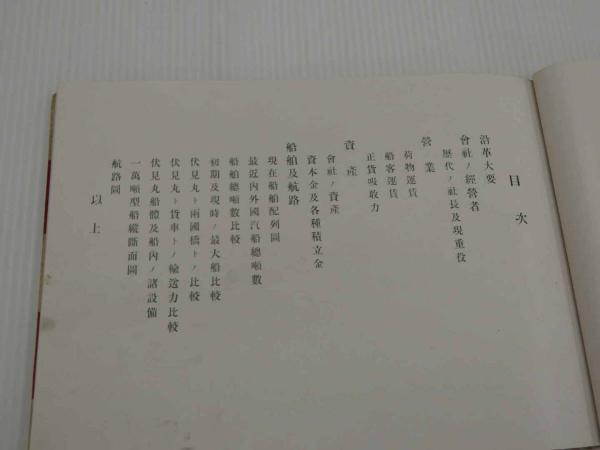 目次
沿革大要
會社ノ經營者
歷代ノ社長及現重役
營業
荷物運賃
船客運賃
正貨吸收力
資產
會社ノ資產
資本金及各種積立金
船舶及航路
現在船舶配列圖
最近內外國汽船總噸數
船舶總噸數比較
初期及現時ノ最大船比較
伏見丸ト兩國橋トノ比較
伏見丸ト貨車トノ輸送力比較
伏見丸船體及船內ノ諸設備
一萬噸型船縱斷面圖
航路圖
以上